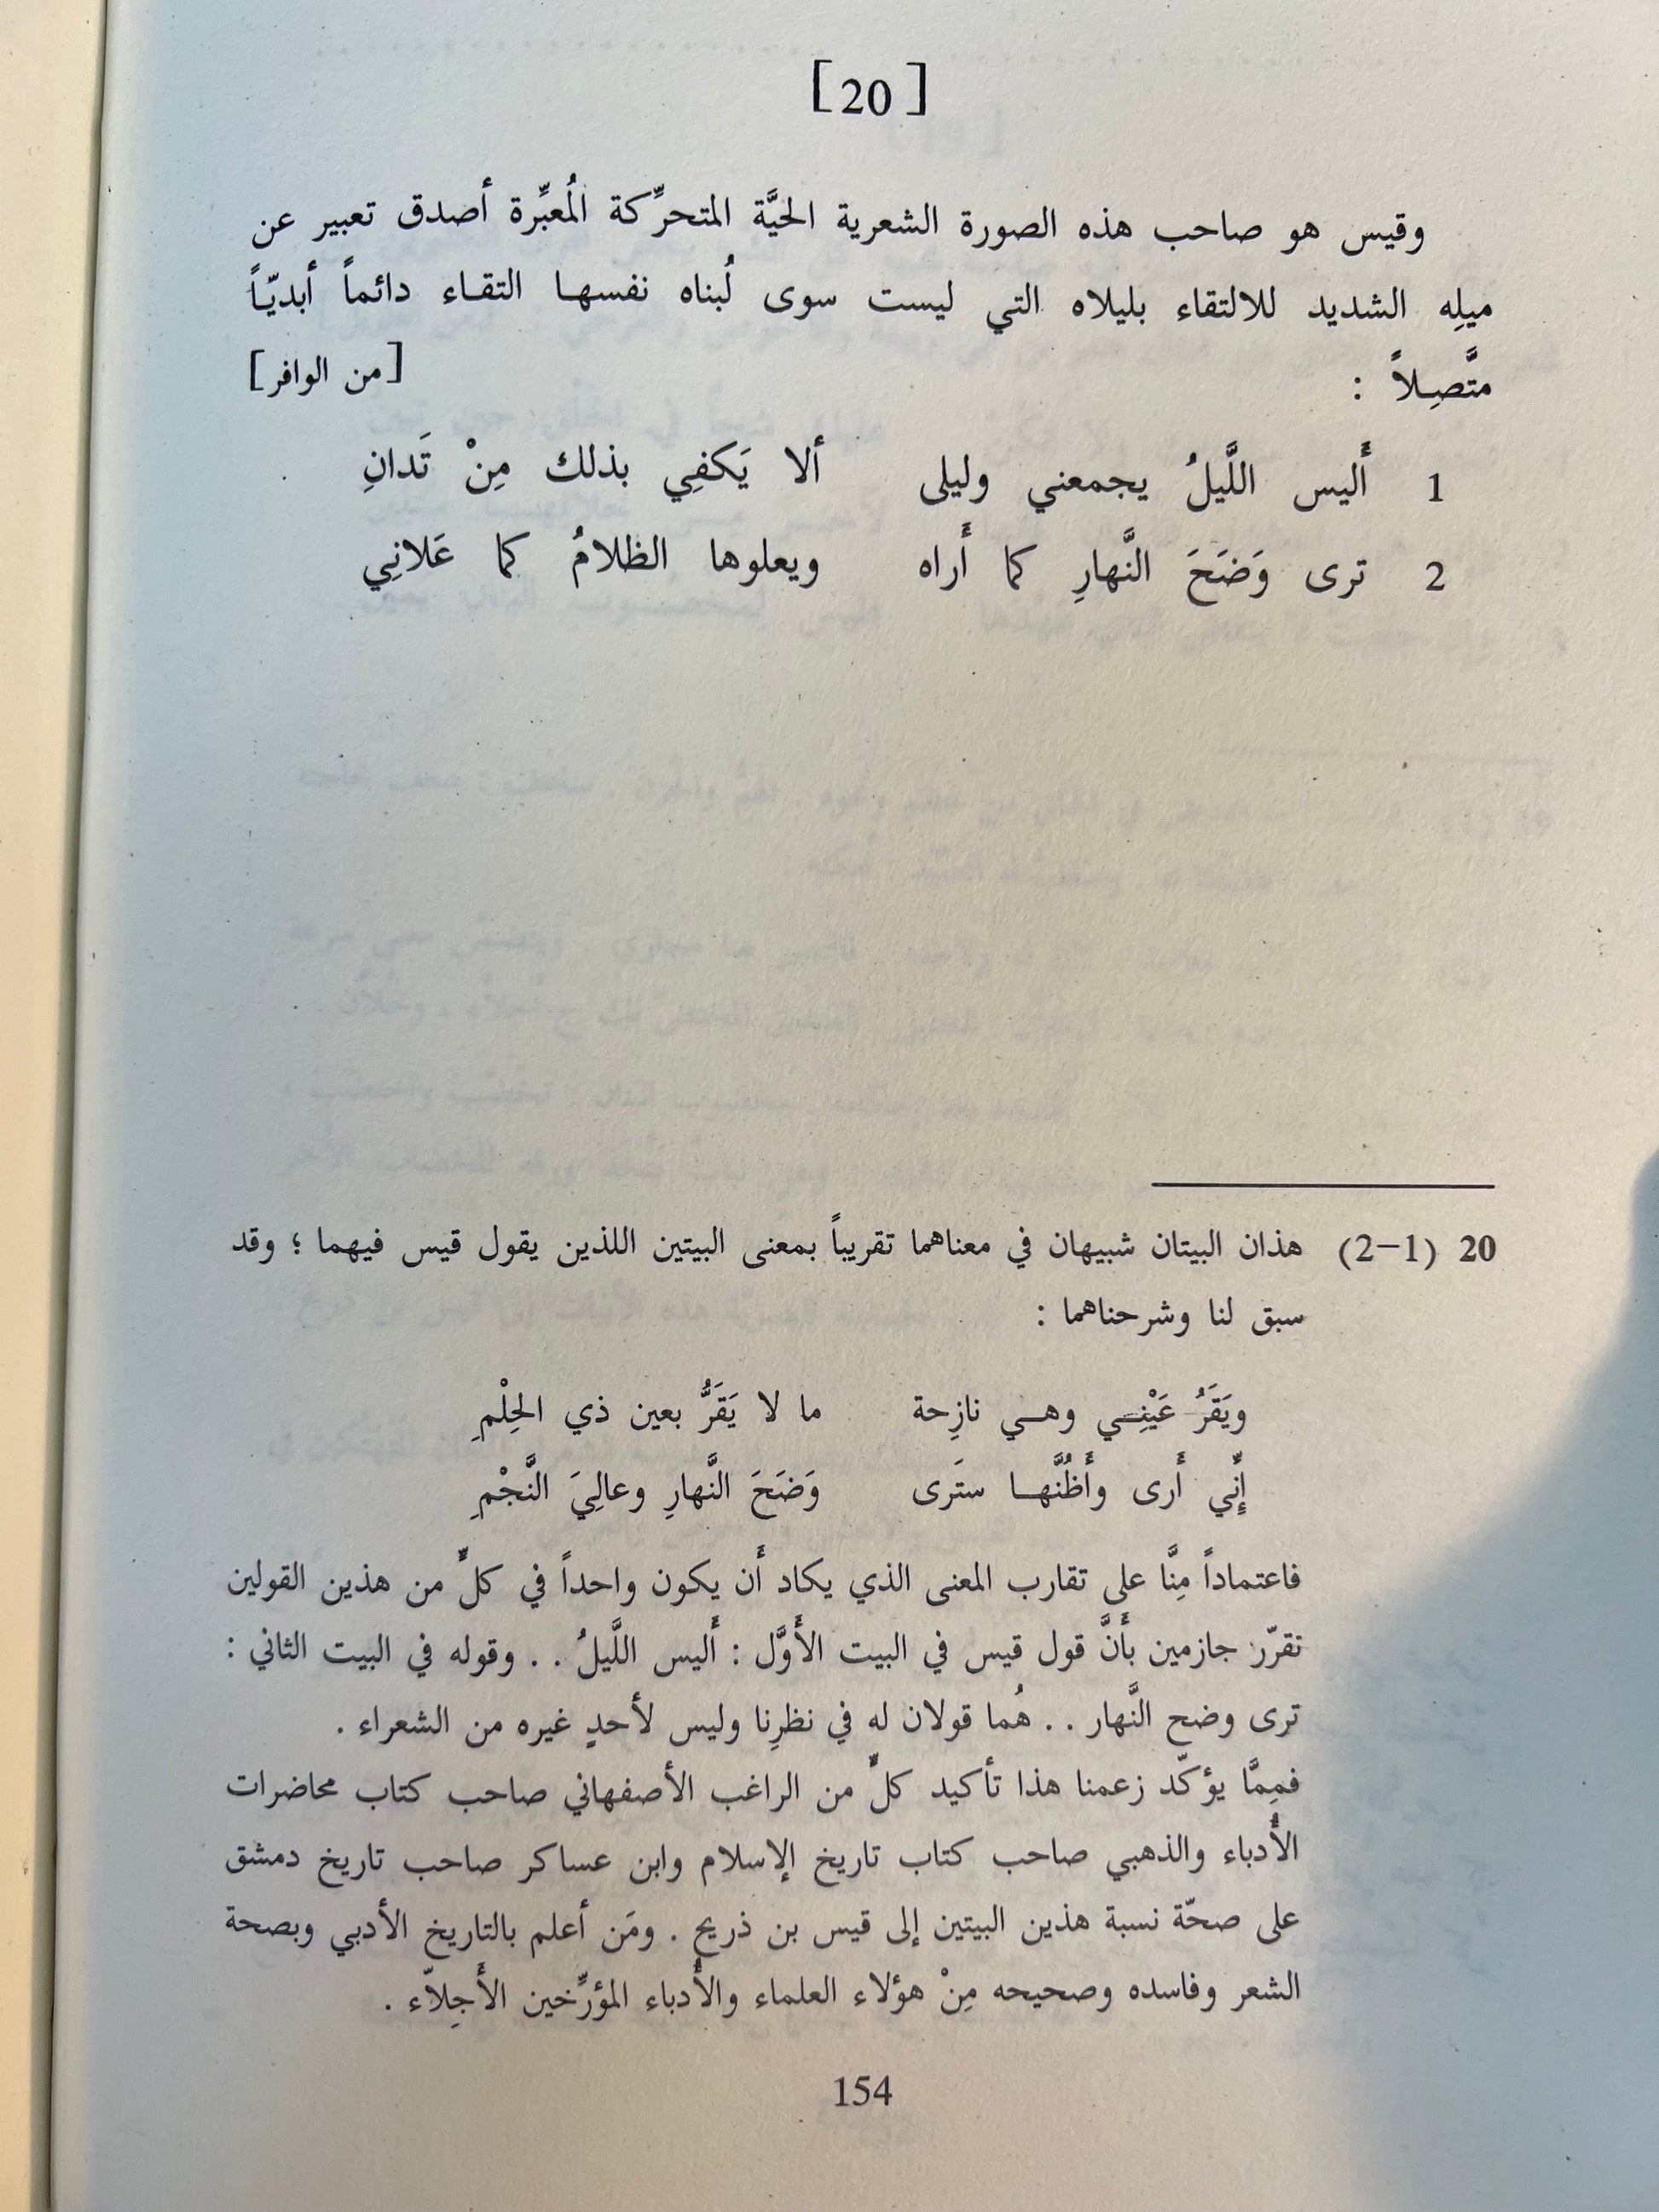 [20]
وقيس هو صاحب هذه الصورة الشعرية الحيَّة المتحرِّكة المُعبِّرة أصدق تعبير عن
ميلِه الشديد للالتقاء بليلاه التي ليست سوى لُبناه نفسها التقاء دائماً أبديّاً
متَّصِلاً : [من الوافر]
1 أَليس اللَّيلُ يجمعني وليلى ألا يَكفِي بذلك مِنْ تَدانِ
2 ترى وَضَحَ النَّهارِ كما أَراه ويعلوها الظلامُ كما عَلانِي
20 (1–2) هذان البيتان شبيهان في معناهما تقريباً بمعنى البيتين اللذين يقول قيس فيهما ؛ وقد
سبق لنا وشرحناهما :
ويَقَرُ عَيْنِي وهي نازِحة ما لا يَقَرُّ بعين ذي الحِلْمِ
إِنِّي أَرى وأَظُنَّها ستَرى وَضَحَ النَّهارِ وعالِيَ النَّجْمِ
فاعتماداً مِنَّا على تقارب المعنى الذي يكاد أَن يكون واحداً في كلٍّ من هذين القولين
نقرّر جازمين بأَنَّ قول قيس في البيت الأَوَّل : أَليس اللَّيلُ . . وقوله في البيت الثاني :
ترى وضح النَّهار . . هُما قولان له في نظرِنا وليس لأحدٍ غيره من الشعراء .
فمِمَّا يؤكّد زعمنا هذا تأكيد كلٍّ من الراغب الأصفهاني صاحب كتاب محاضرات
الأُدباء والذهبي صاحب كتاب تاريخ الإسلام وابن عساكر صاحب تاريخ دمشق
على صحّة نسبة هذين البيتين إلى قيس بن ذريح . ومَن أعلم بالتاريخ الأدبي وبصحة
الشعر وفاسده وصحيحه مِنْ هؤلاء العلماء والأُدباء المؤرِّخين الأَجِلاّء .
154